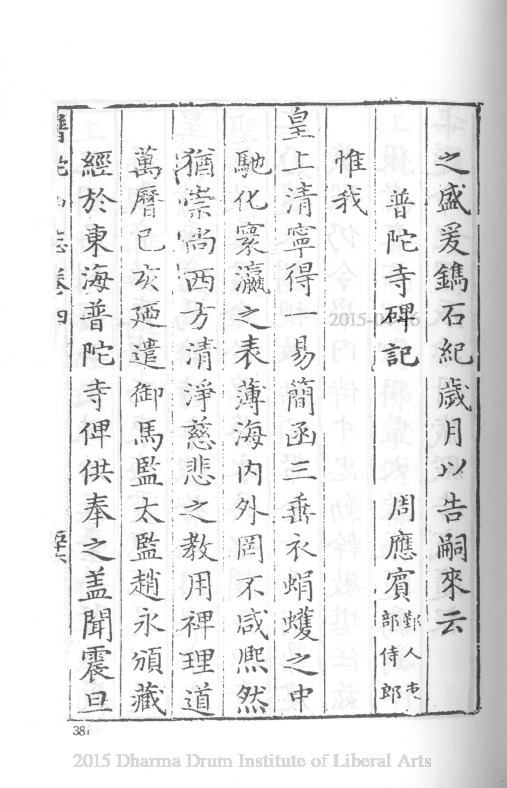 之盛爰鐫石紀歲月以告嗣來云
普陀寺碑記 周應賓 鄞人吏部侍郎
惟我
皇上清寧得一易簡函三垂衣蜎蠖之中
馳化寰瀛之表薄海內外罔不咸熈然
猶崇尚西方清淨慈悲之教用裨理道
萬曆己亥廼遣御馬監太監趙永頒藏
經於東海普陀寺俾供奉之盖聞震旦
普陀山志卷四
381
2015 Dharma Drum Institute of Liberal Arts